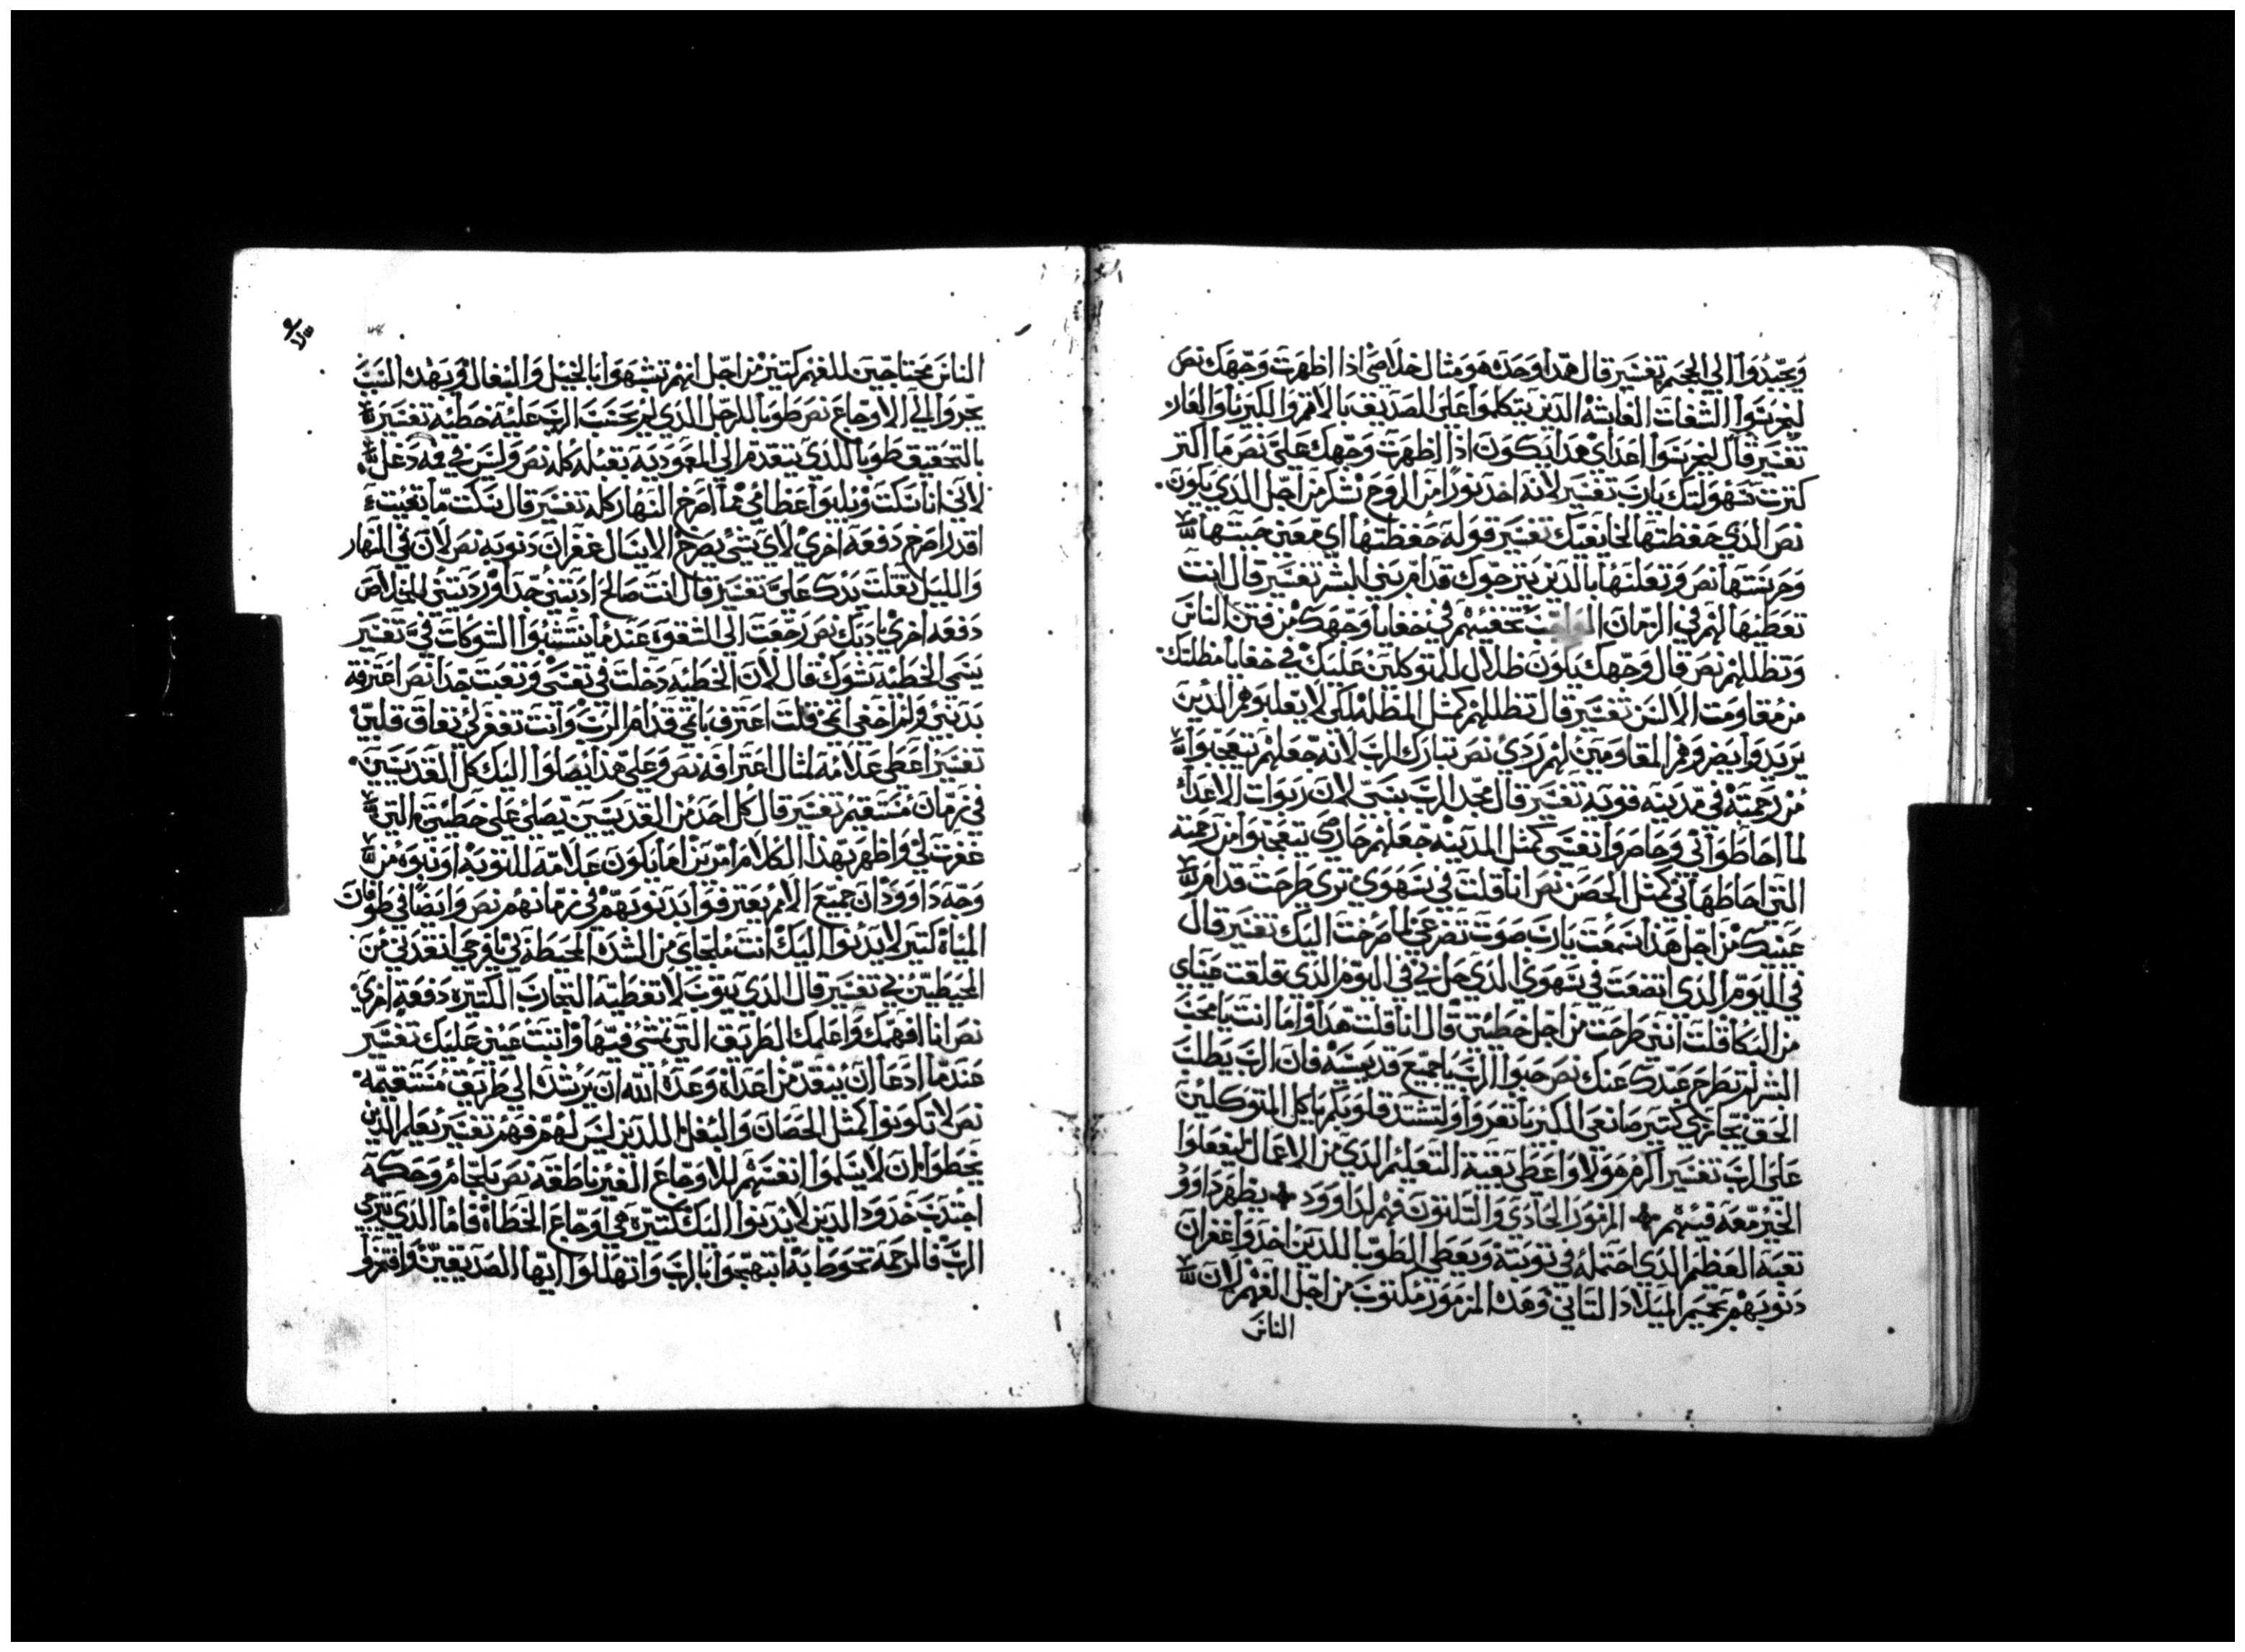 ويحيدوا الي الجحيم تفسير قال هدا وحده هو مثال خلاصي اذا اظهرت وجهك نص
ليخرسوا الشفات الغاشه الدين يتكلموا علي الصديق بالاثم والكبريا والعار
تفسير قال ليخرسوا اعداي هدا يكون ادا اظهرت وجهك علي نص ما اكتر
كترت شهولتك يارب تفسير لانه اخد نورا من الروح شكر من اجل الدي يكون
نص الدي حفظتها لخايفيك تفسير قوله حفظتها اي معني حبستها
وحرستها نص وتعلنها بالدين يترجوك قدام بني البشر تفسير قال انت
تعطيها لهم في الزمان تخفيهم في خفايا وجهك من فتن الناس
وتظللهم نص قال وجهك يكون ظلال للمتوكلين عليك في خفايا مظلتك
من مقاومت الالسن تفسير قال تظللهم كمثل المظله لكي لا يغلبوهم الدين
يريدوا يضروهم المقاومين لهم ردي نص تبارك الرب لانه جعلهم تعجبوا
من رحمته في مدينه قويه تفسير قال مجد الرب بنبي لان ربوات الاعدا
لما احاطوا بي وحاصروا نفسي كمثل المدينه جعلهم حارص يتعجبوا من رحمته
التي احاطها بي كمثل الحصن نص انا قلت في سهوي تري طرحت قدام
عينيك من اجل هدا سمعت يارب صوت تضرعي لما صرخت اليك تفسير قال
في اليوم الدي اتضعت في سهوي الدي حل بي في اليوم الدي قلقت عيناي
من البكا قلت انني طرحت من اجل خطيتي قال انا قلت هدا واما انت يامحب
البشر لم تطرح عبدك عنك نص حبوا الرب ياجميع قديسيه فان الرب يطلب
الحق يجازي كتير صانعي الكبريا تعزوا ولتشتد قلوبكم ياكل المتوكلين
علي الرب تفسير اكرم هولا واعطي بقية التعليم الدي من الاعمال ليفعلوا
الخير معه فيهم المزمور الحادي والتلتون فهم لداوود يظهر داوود
تعبه العظيم الدي احتمله في توبته ويعطي الطوبا للدين اخدوا غفران
دنوبهم بحميم الميلاد التاني وهدا المزمور مكتوب من اجل الفهم لان
الناس
الناس محتاجين للفهم كتير من اجل انهم تشبهوا بالخيل والبغال وبهدا السبب
يجروا الي الاوجاع نص طوبا للرجل الدي لم يحسب الرب عليه خطيه تفسير
بالتحقيق طوبا للدي يتقدم الي المعموديه بقبله كله نص وليس في فمه دغل
لاني انا سكت وبليوا عظامي مما اصرخ النهار كله تفسير قال سكت ما بقيت
اقدر اصرخ دفعه اخري لاي شي يصرخ الا يسال غفران دنوبه نص لان في النهار
والليل تقلت يدك علي تفسير قال انت صالح ادبتني جدا ورديتني للخلاص
دفعه اخري بادبك نص رجعت الي الشقوه عندما انتشبوا الشوكات في تفسير
يسمي الخطيه شوك قال لان الخطيه دخلت في نفسي وتعبت جدا نص اعترفه
بدنبي ولم اخفي اتمي قلت اعترف باتمي قدام الرب وانت تغفر لي نفاق قلبي
تفسير اعطي علامة لمثال اعترافه نص وعلي هدا يصلوا اليك كل القديسين
في زمان مستقيم تفسير قال كل احد من القديسين يصلي علي خطيتي التي
غفرت لي واظهر بهدا الكلام امرين اما يكون علامة للتوبه او نبوه من
وجه داوود ان جميع الامم يعترفوا بدنوبهم في زمانهم نص وايضا في طوفان
المياه كتير لا يدنوا اليك انت ملجاي من الشده المحيطه بي يا فرحي انقدني من
المحيطين بي تفسير قال الدي يتوب لا تغطيه التجارب الكتيره دفعه اخري
نص انا افهمك واعلمك الطريق التي تمشي فيها واتبت عيني عليك تفسير
عندما ادعا ان ينقد من اعداه وعده الله ان يرشده الي طريق مستقيمه
نص لا تكونوا كمثل الحصان والبغل اللدين ليس لهم فهم تفسير يعلم الدين
يخطوا ان لا يسلموا انفسهم للاوجاع الغير ناطقه نص بلجام وحكمة
اجتدب خدود الدين لا يدنوا اليك كتيره هي اوجاع الخطاه فاما الدي يترجي
الرب فالرحمة تحوط به ابتهجوا بالرب وتهللوا ايها الصديقين وافتخروا